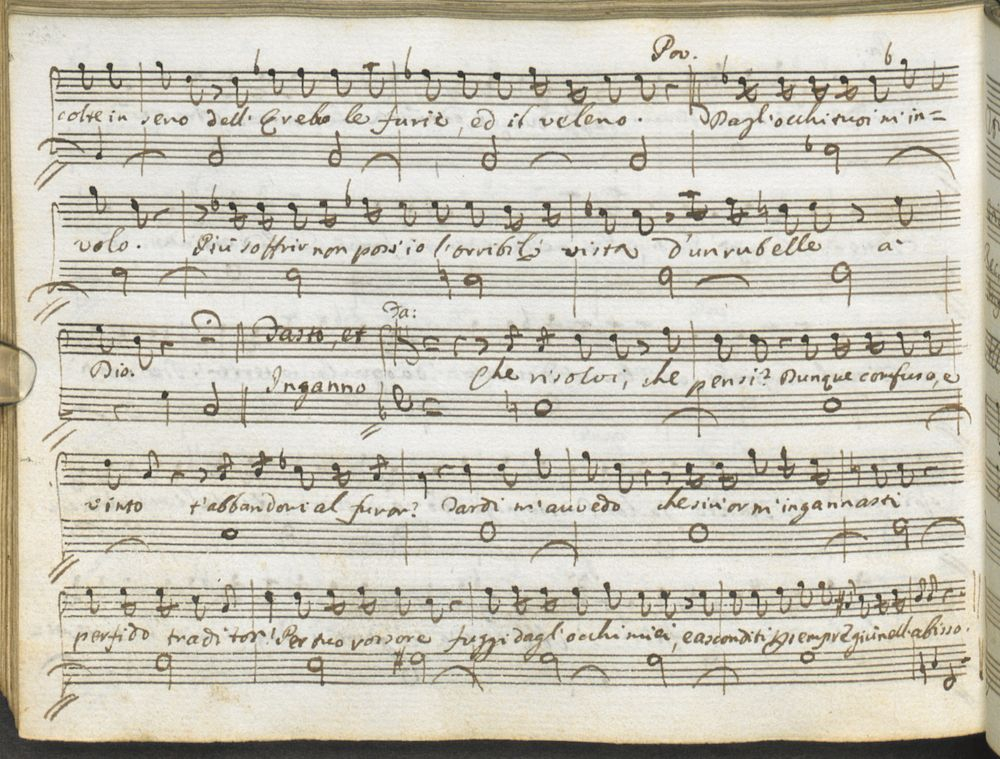 Pov.
colte in seno dell' Erebo le furie, ed il veleno. Dagl'occhi tuoi m'in=
volo. Più soffrir non poss'io l'orribil vista d'un rubelle a
Dio. Tasto, et Fa:
Inganno Che risolvi, che pensi? Dunque confuso, e
vinto t'abbandoni al furor? Tardi m'avvedo che sin'or m'ingannasti
perfido traditor! Per tuo rossore fuggi dagl'occhi miei, e asconditi p sempre giù nell'abisso.